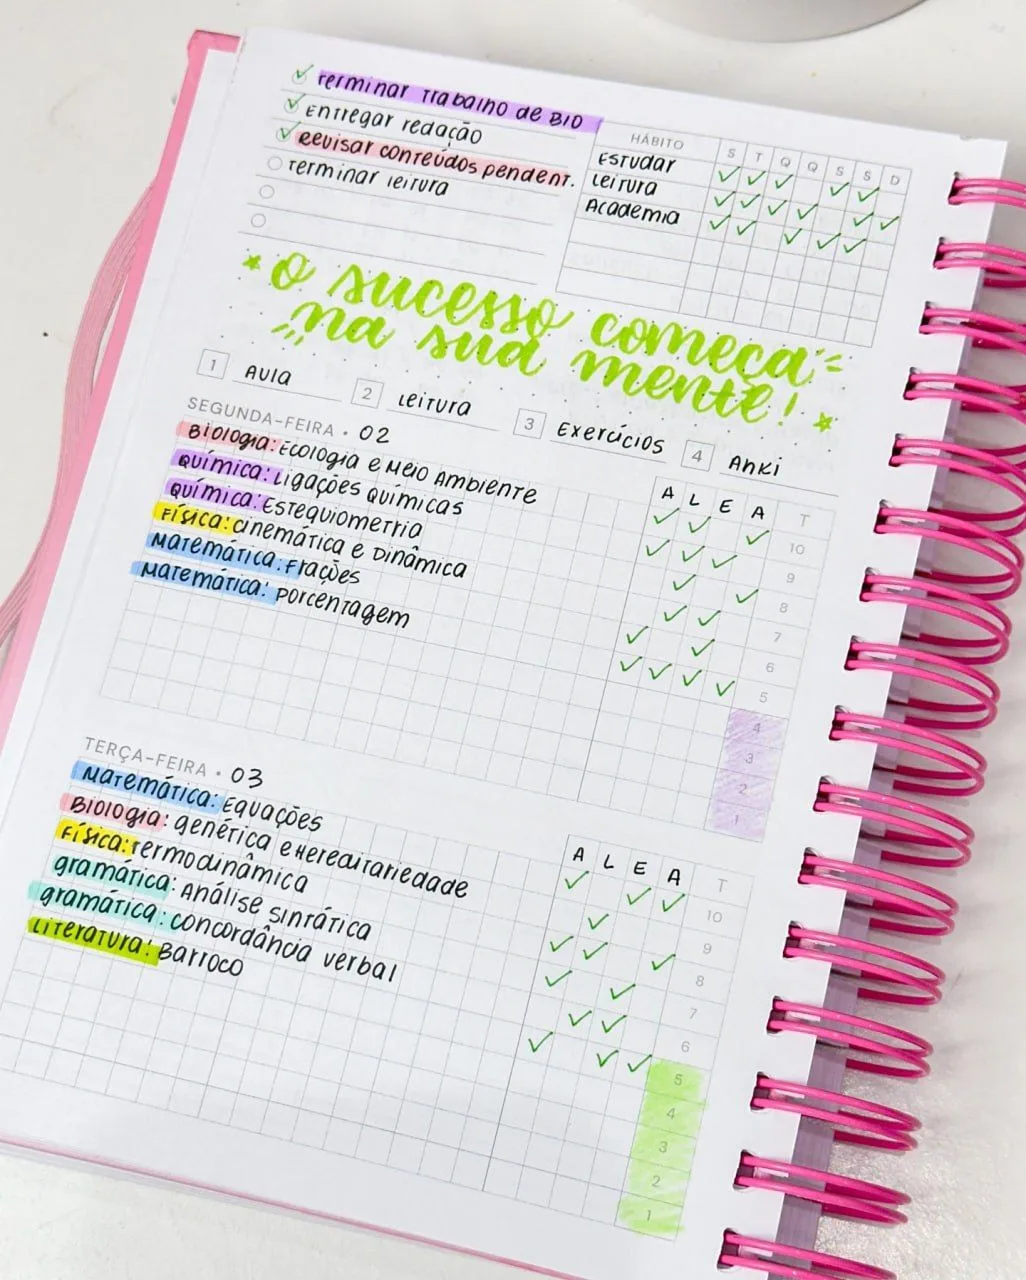 Terminar Trabalho de BIO
Entregar redação
Revisar conteúdos pendent.
Terminar leitura
HÁBITO S T Q Q S S D
Estudar ✓ ✓ ✓ ✓ ✓
Leitura ✓ ✓ ✓ ✓ ✓ ✓
Academia ✓ ✓ ✓ ✓ ✓
o sucesso começa
na sua mente!
1 Aula 2 Leitura 3 Exercícios 4 Anki
SEGUNDA-FEIRA • 02
A L E A T
Biologia: Ecologia e Meio Ambiente
Química: Ligações químicas
Química: Estequiometria
Física: Cinemática e Dinâmica
Matemática: Frações
Matemática: Porcentagem
10
9
8
7
6
5
4
3
2
1
TERÇA-FEIRA • 03
A L E A T
Matemática: Equações
Biologia: genética e Hereditariedade
Física: Termodinâmica
gramática: Análise sintática
gramática: Concordância verbal
Literatura: Barroco
10
9
8
7
6
5
4
3
2
1